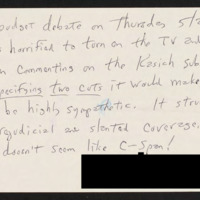 budget debate on Thursday 5/2
s horrified to turn on the TV and
n commenting on the Kasich sub
specifying two cuts it would make
be highly sympathetic. It stru
rejudicial as slanted coverage.
doesn't seem like C-Span!